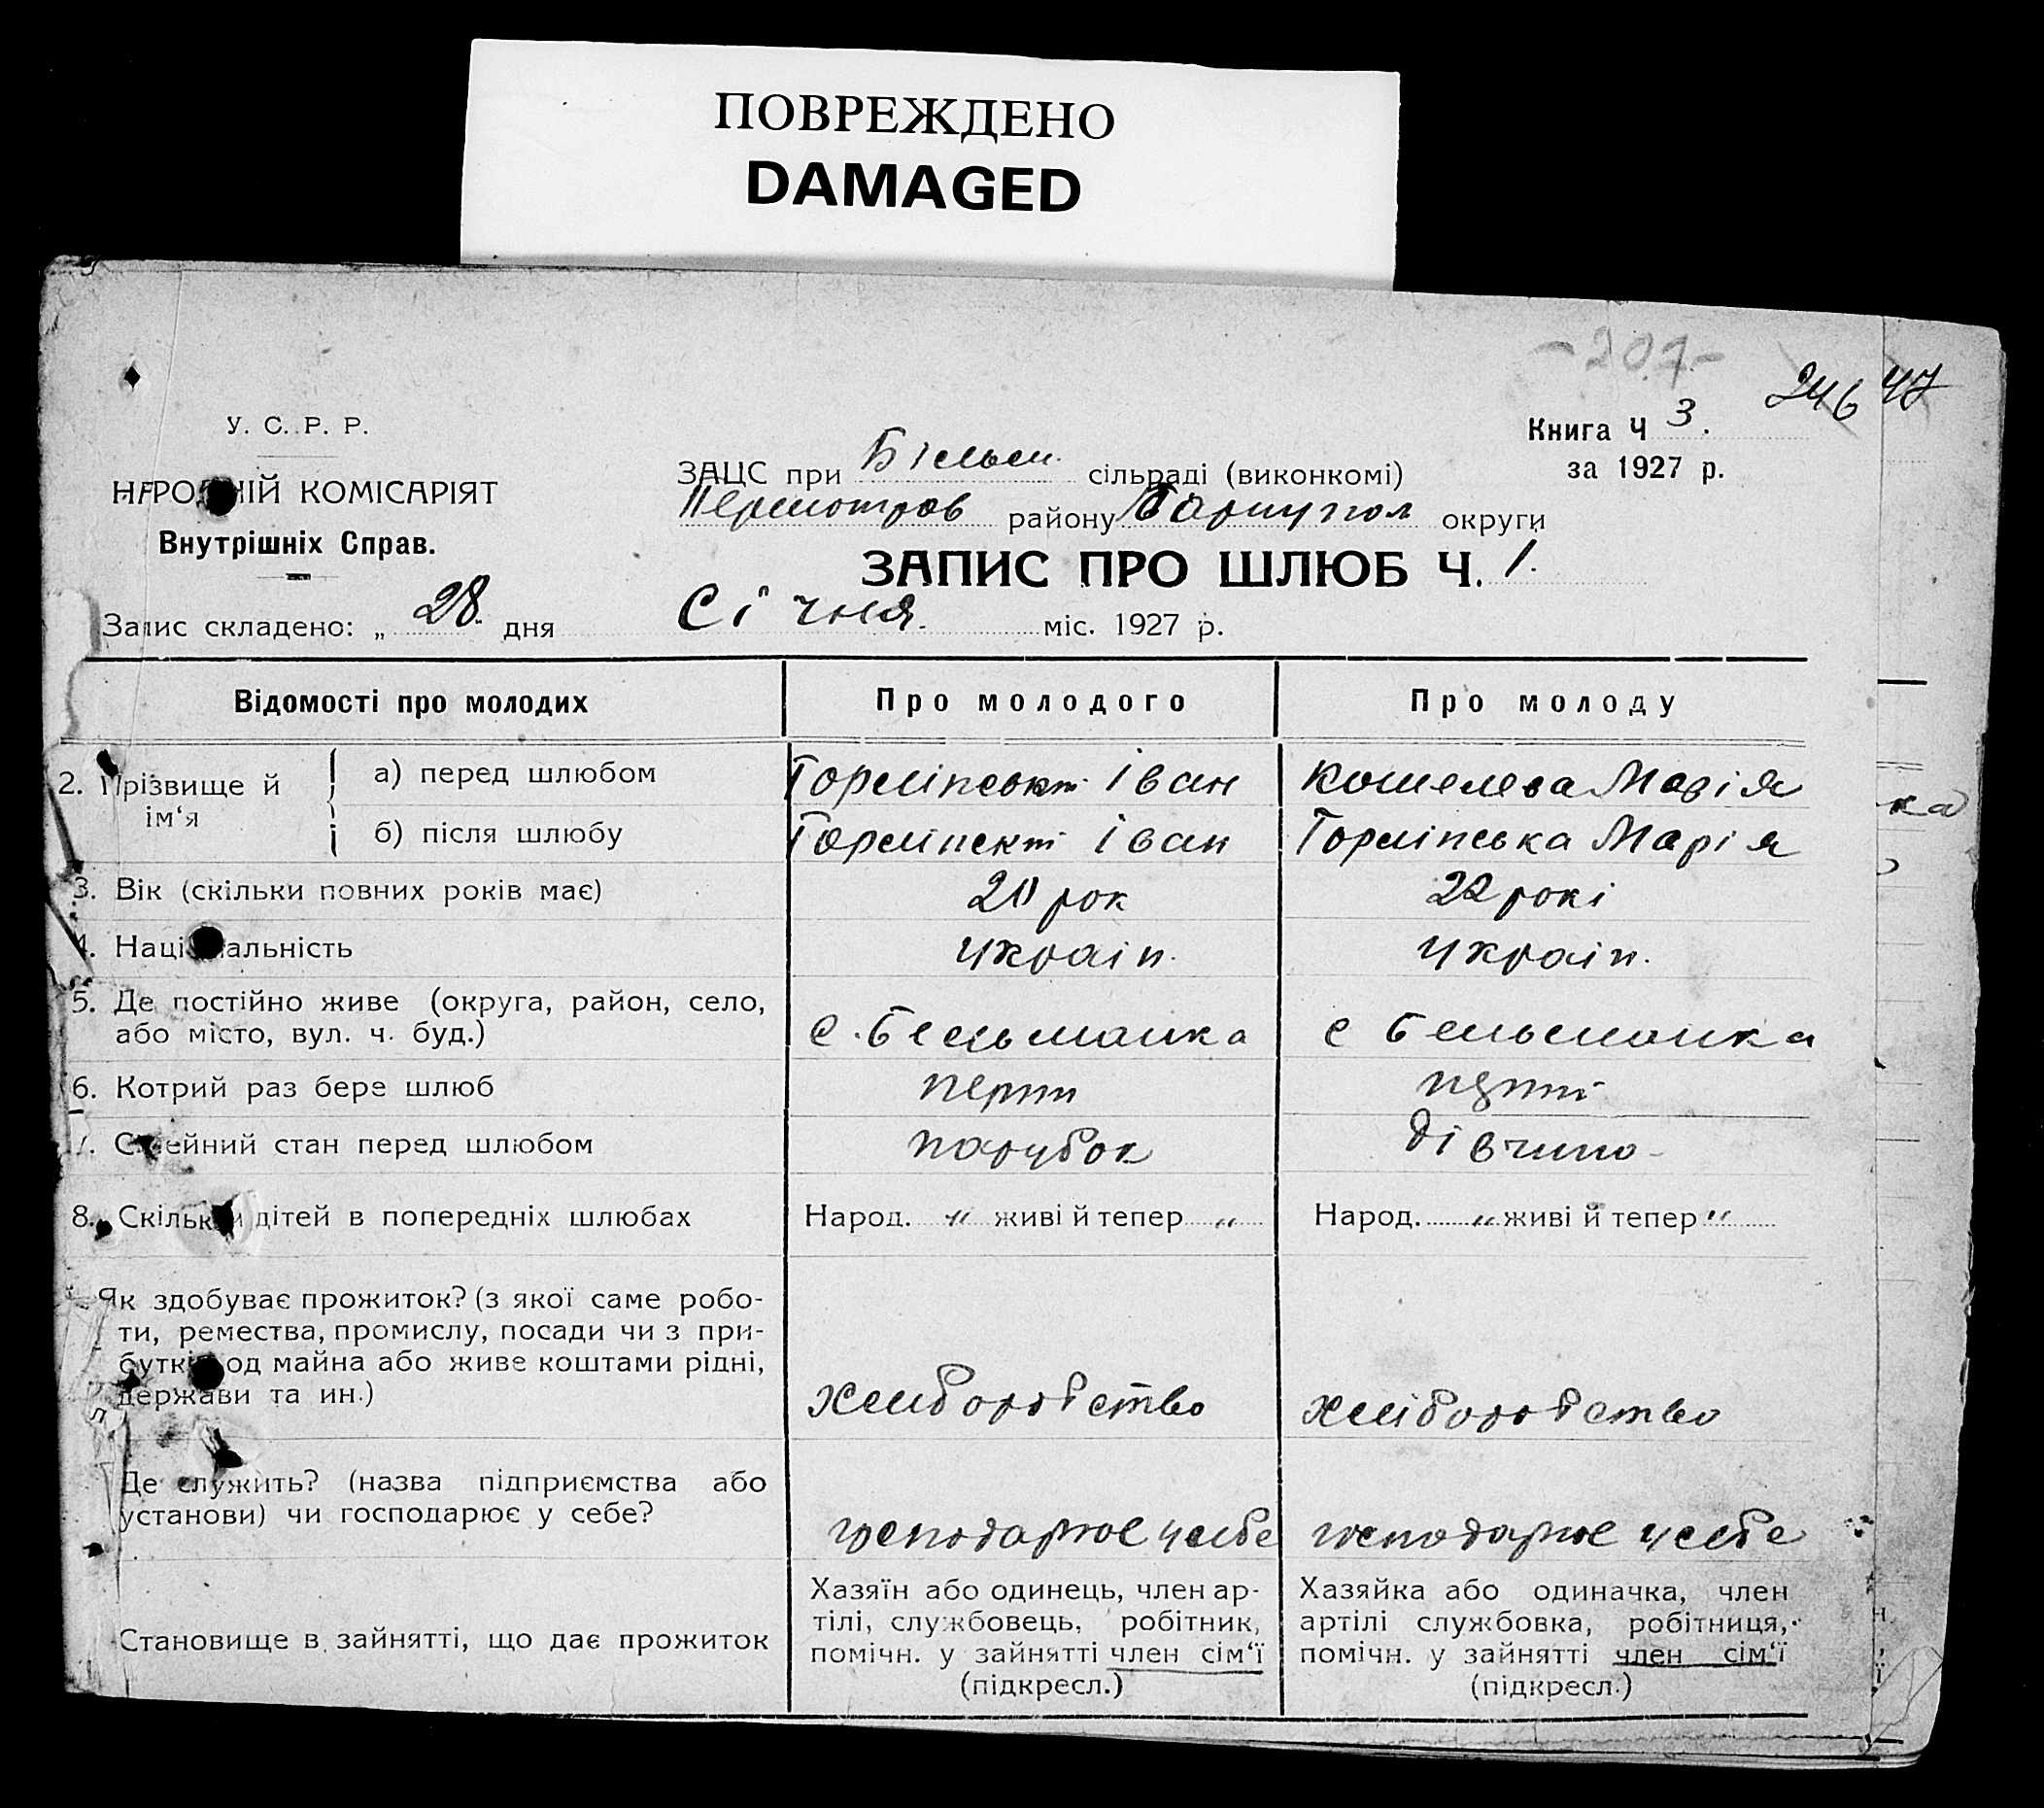 ПОВРЕЖДЕНО
DAMAGED
-207-
246 47
У. С. Р. Р.
НАРОДНІЙ КОМІСАРІЯТ
Внутрішніх Справ.
Книга Ч 3.
за 1927 р.
ЗАЦС при Більм. сільраді (виконкомі)
району Маріупол округи
ЗАПИС ПРО ШЛЮБ Ч. 1.
Запис складено: „ 28 " дня Січня. міс. 1927 р.
Відомості про молодих
Про молодого
Про молоду
2. Прізвище й ім‘я
а) перед шлюбом
Іван
Кошелева Марія
б) після шлюбу
Іван
Горліпська Марія
3. Вік (скільки повних років має)
рок
22 рокі
4. Національність
україн.
україн.
5. Де постійно живе (округа, район, село,
або місто, вул. ч. буд.)
с. Бельманка
с Бельманка
6. Котрий раз бере шлюб
7. Сімейний стан перед шлюбом
парубок
дівчина
8. Скільки дітей в попередніх шлюбах
Народ. " живі й тепер "
Народ. " живі й тепер "
Як здобуває прожиток? (з якої саме робо-
ти, ремества, промислу, посади чи з при-
бутків од майна або живе коштами рідні,
держави та ин.)
хліборобство
хліборобство
Де служить? (назва підприємства або
установи) чи господарює у себе?
господарює у себе
господарює у себе
Становище в зайнятті, що дає прожиток
Хазяїн або одинець, член ар-
тілі, службовець, робітник,
помічн. у зайнятті член сім‘ї
(підкресл.)
Хазяйка або одиначка, член
артілі службовка, робітниця,
помічн. у зайнятті член сім‘ї
(підкресл.)